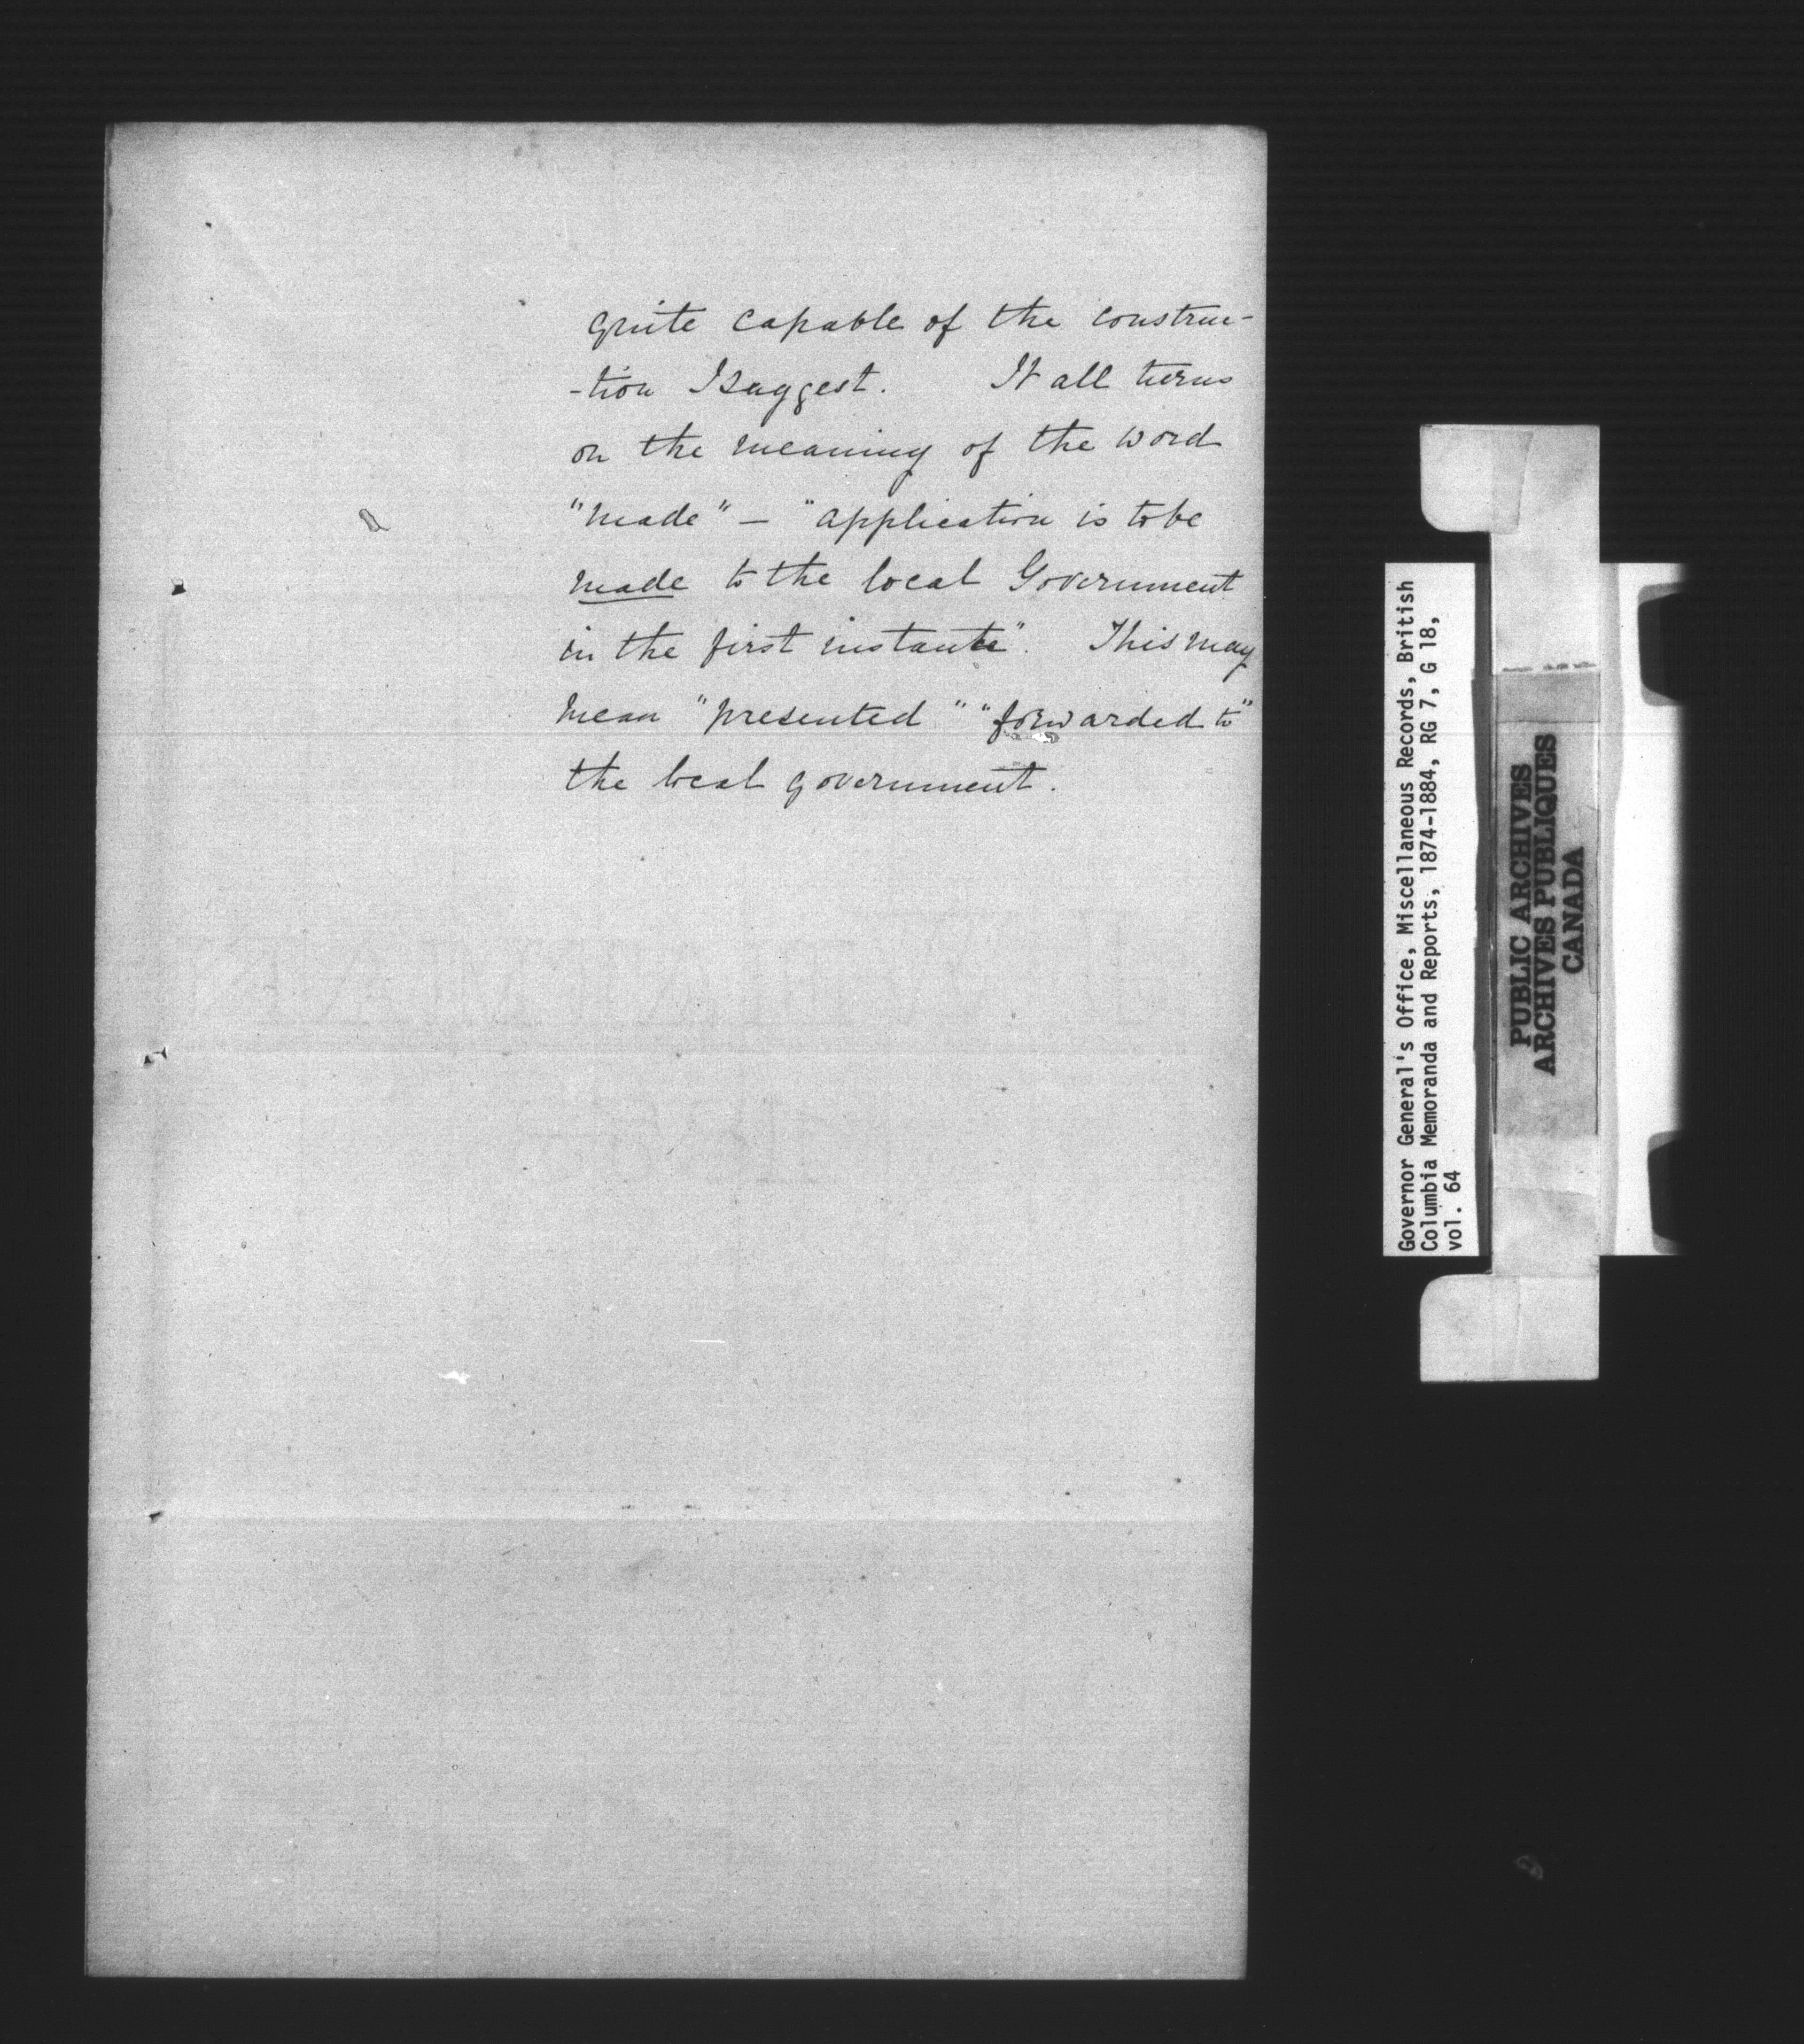 quite capable of the construc-
-tion I suggest. It all turns
on the meaning of the word
"made" — "application is to be
made to the local Government
in the first instance". This may
mean "presented" "forwarded to"
the local government.
Governor General's Office, Miscellaneous Records, British
Columbia Memoranda and Reports, 1874-1884, RG 7, G 18,
vol. 64
PUBLIC ARCHIVES
ARCHIVES PUBLIQUES
CANADA